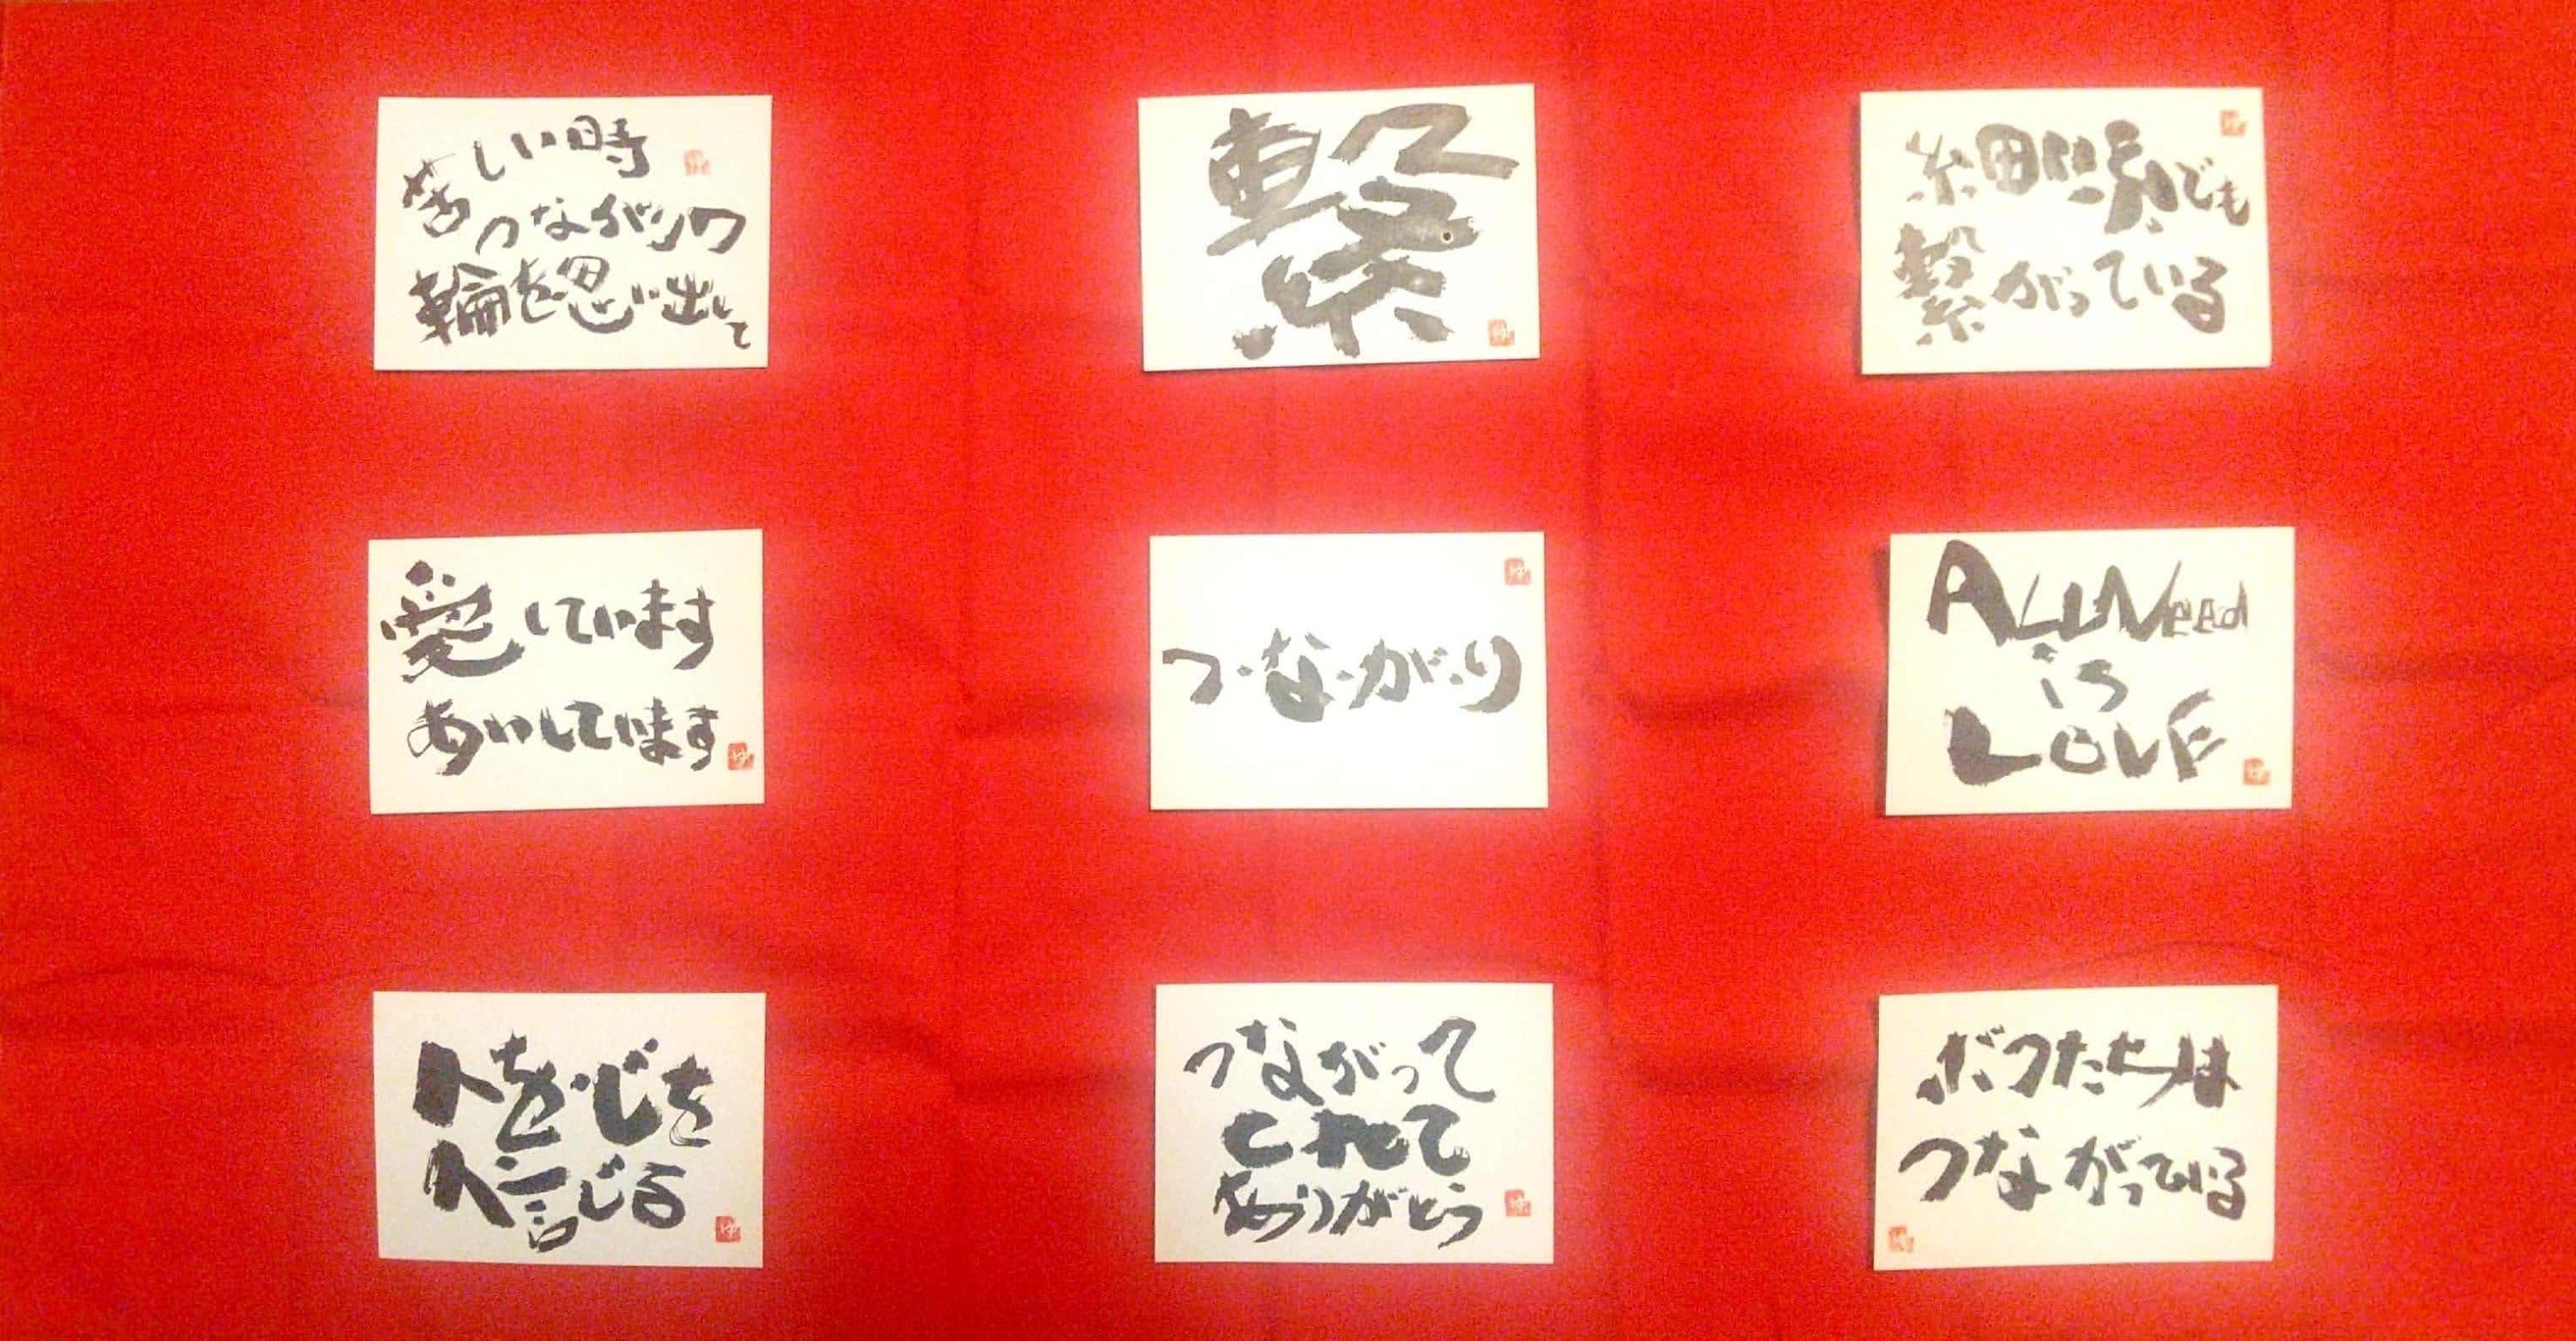 苦しい時
つながりの
輪を思い出して
繋
細い縁でも
繋がっている
愛しています
あいしています
つ・な・が・り
ALL Need
is
LOVE
人を心を
信じる
つながって
くれて
ありがとう
ボクたちは
つながっている